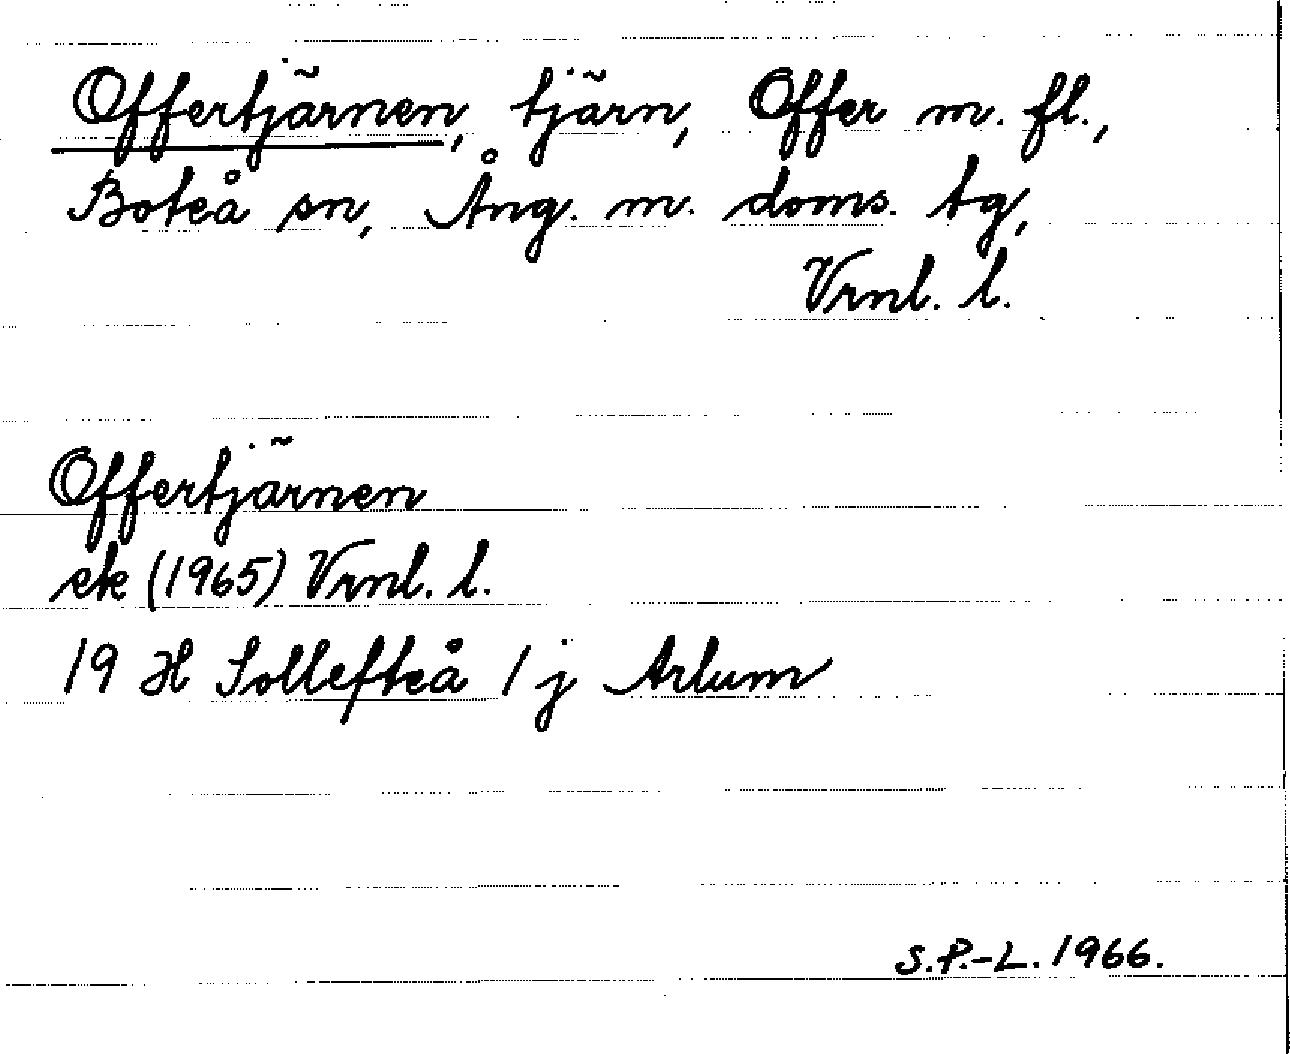 Offertjärnen, tjärn, Offer m. fl.,
Boteå sn, Ång. m. doms. tg,
Vrnl. l.
Offertjärnen
ek (1965) Vrnl. l.
19 H Sollefteå 1 j Arlum
S.P.-L. 1966.